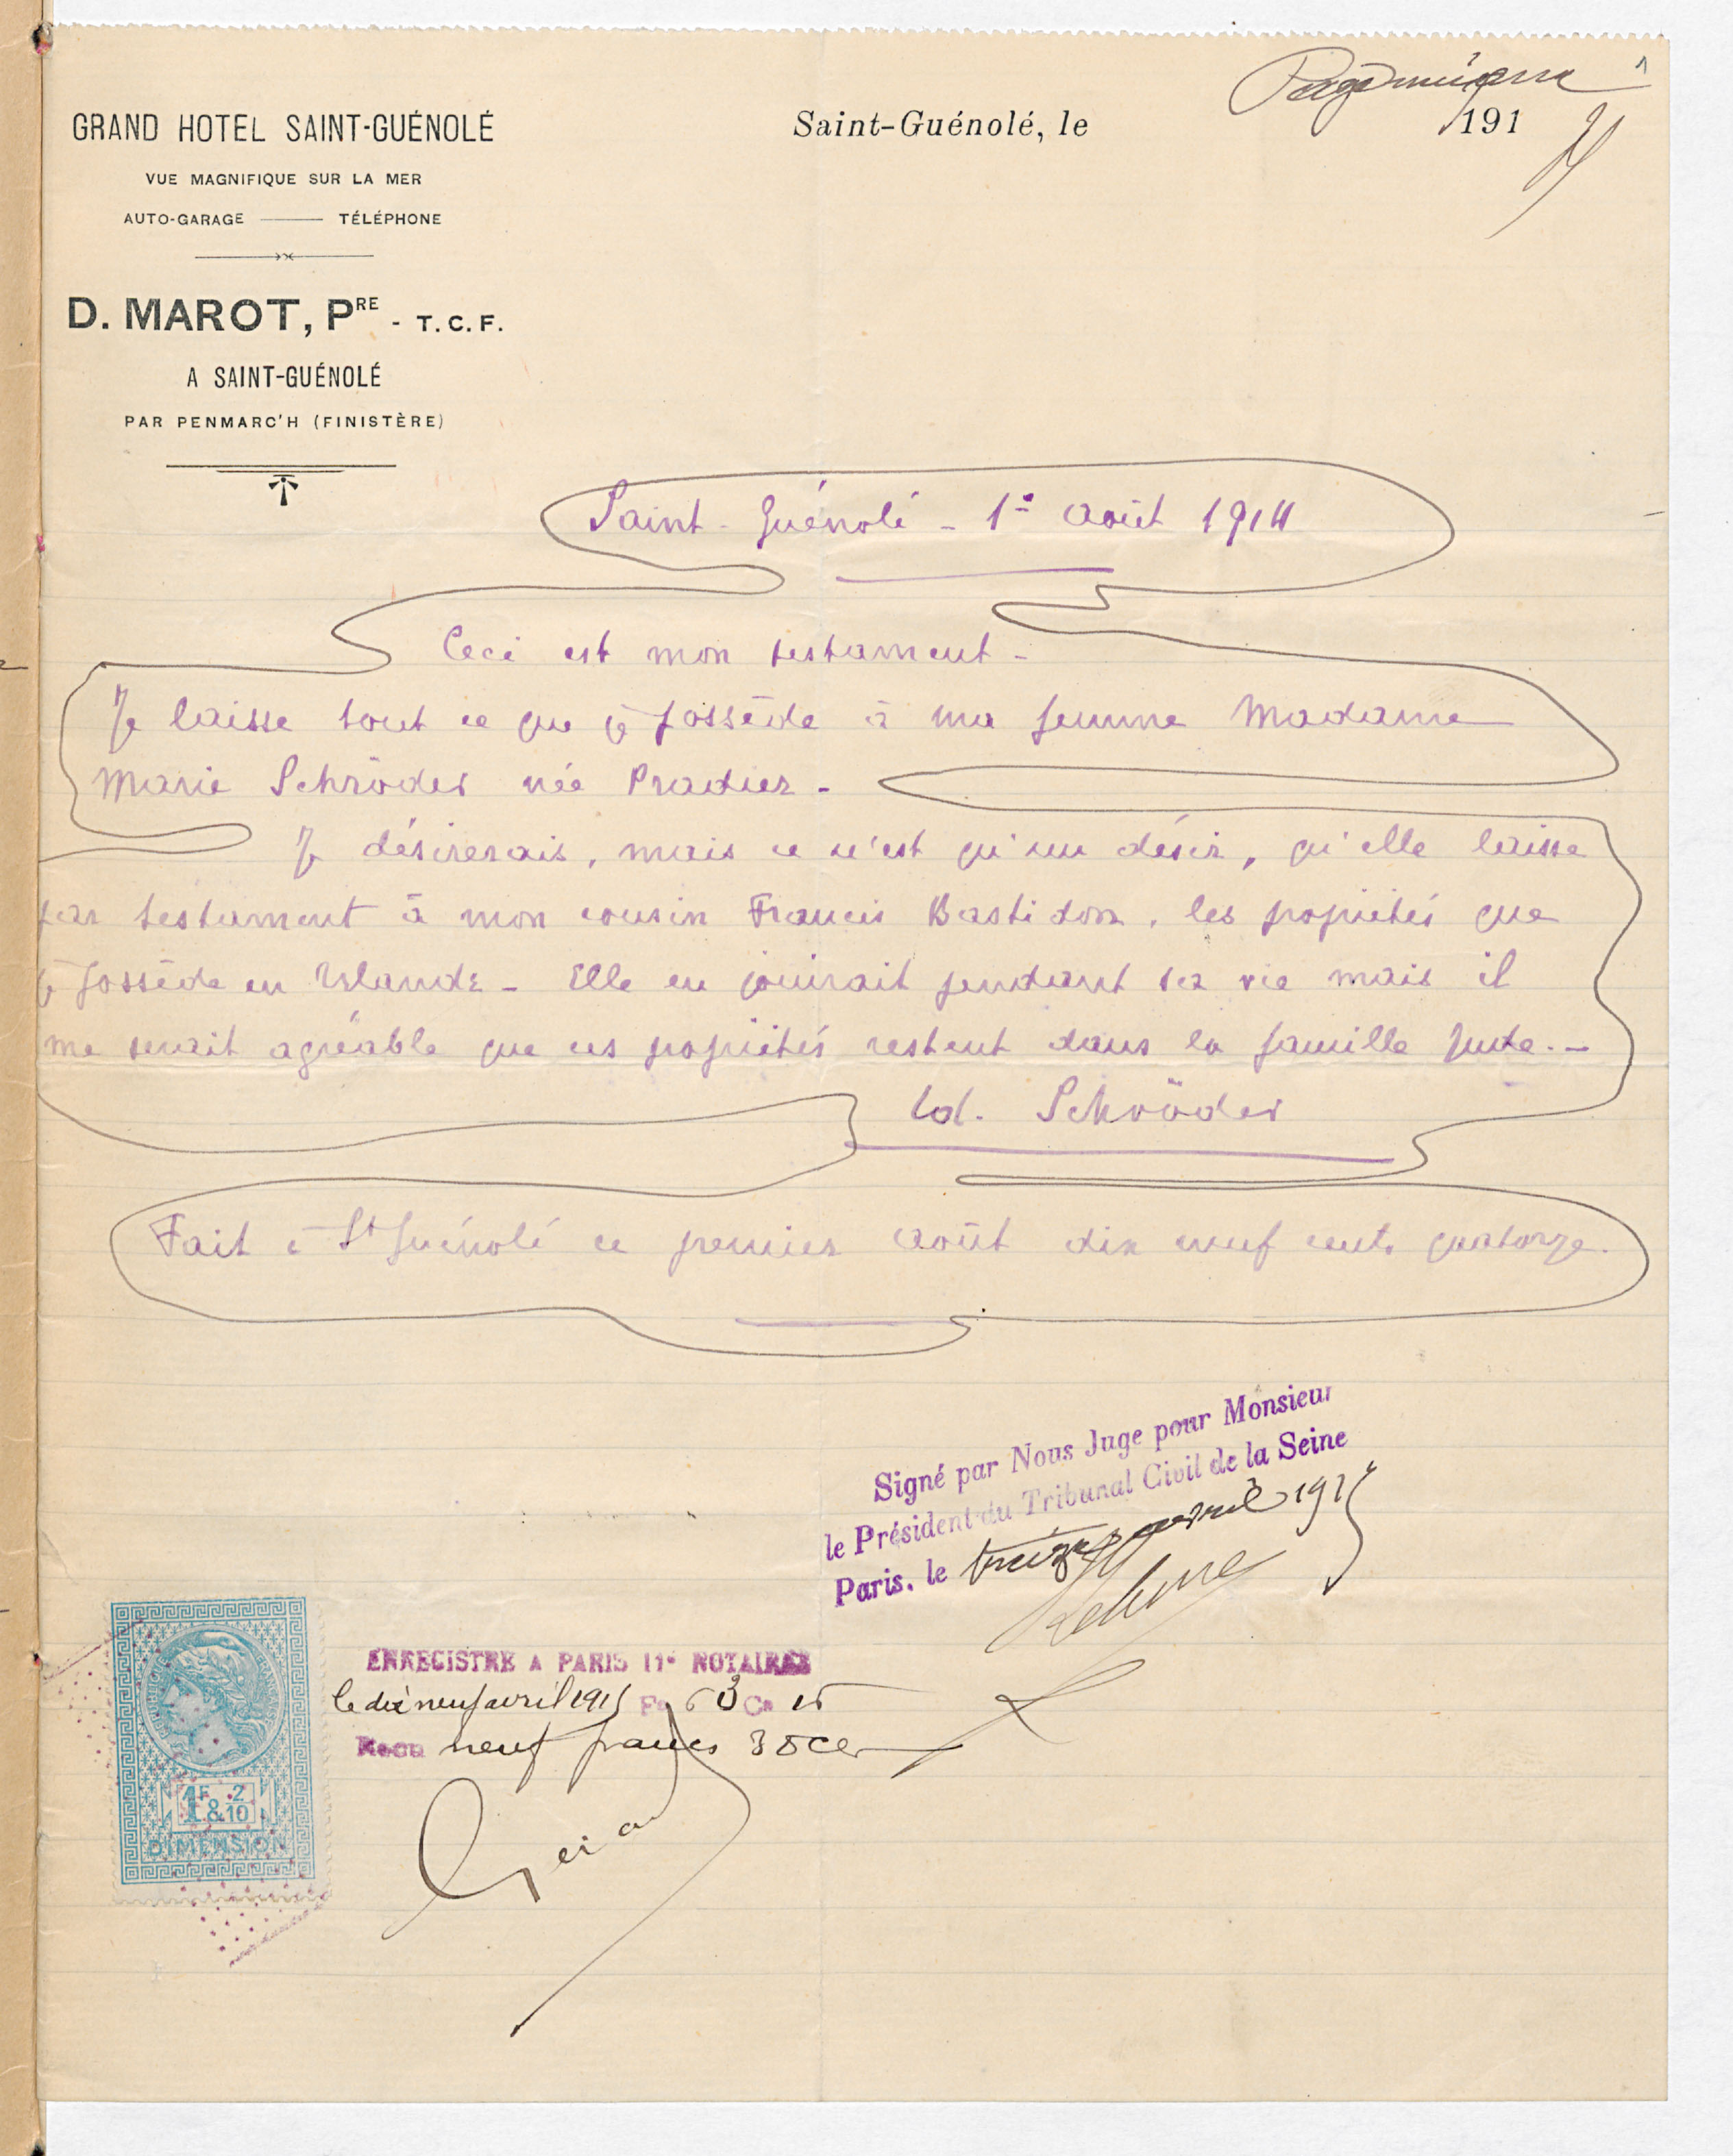 Page unique
1
GRAND HOTEL SAINT-GUÉNOLÉ
Saint-Guénolé, le 191
VUE MAGNIFIQUE SUR LA MER
AUTO-GARAGE TÉLÉPHONE
D. MAROT, PRE - T. C. F.
A SAINT-GUÉNOLÉ
PAR PENMARC'H (FINISTÈRE)
Saint-Guénolé - 1er août 1914
Ceci est mon testament -
Je laisse tout ce que je possède à ma femme Madame
Marie Schröder née Pradier -
Je désirerais, mais ce n'est qu'un désir, qu'elle laisse
par testament à mon cousin Francis Bastidon, les propriétés que
je possède en Islande - Elle en jouirait pendant sa vie mais il
me serait agréable que ces propriétés restent dans la famille Jude. -
Ed. Schröder
Fait à St Guénolé ce premier août dix neuf cent quatorze.
Signé par Nous Juge pour Monsieur
le Président du Tribunal Civil de la Seine
Paris, le treize avril 1915
ENREGISTRE A PARIS 11e NOTAIRES
le dix neuf avril 1915 Fo 63 Ce 15
Recu neuf francs 38 ces
1F & 2/10
DIMENSION